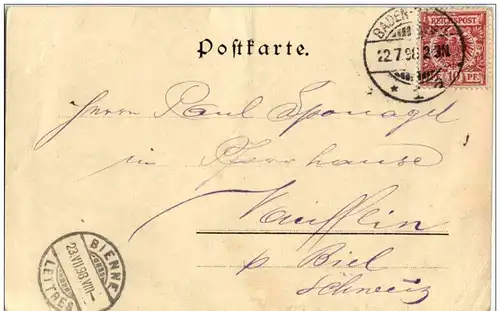 Postkarte.
REICHSPOST
10 PF.
BADEN-
22.7.98
Herrn Paul Sponagel
im Pfarrhause
Vauffelin
p Biel
Schweiz
BIENNE
23.VII.98.VIII-
LETTRES